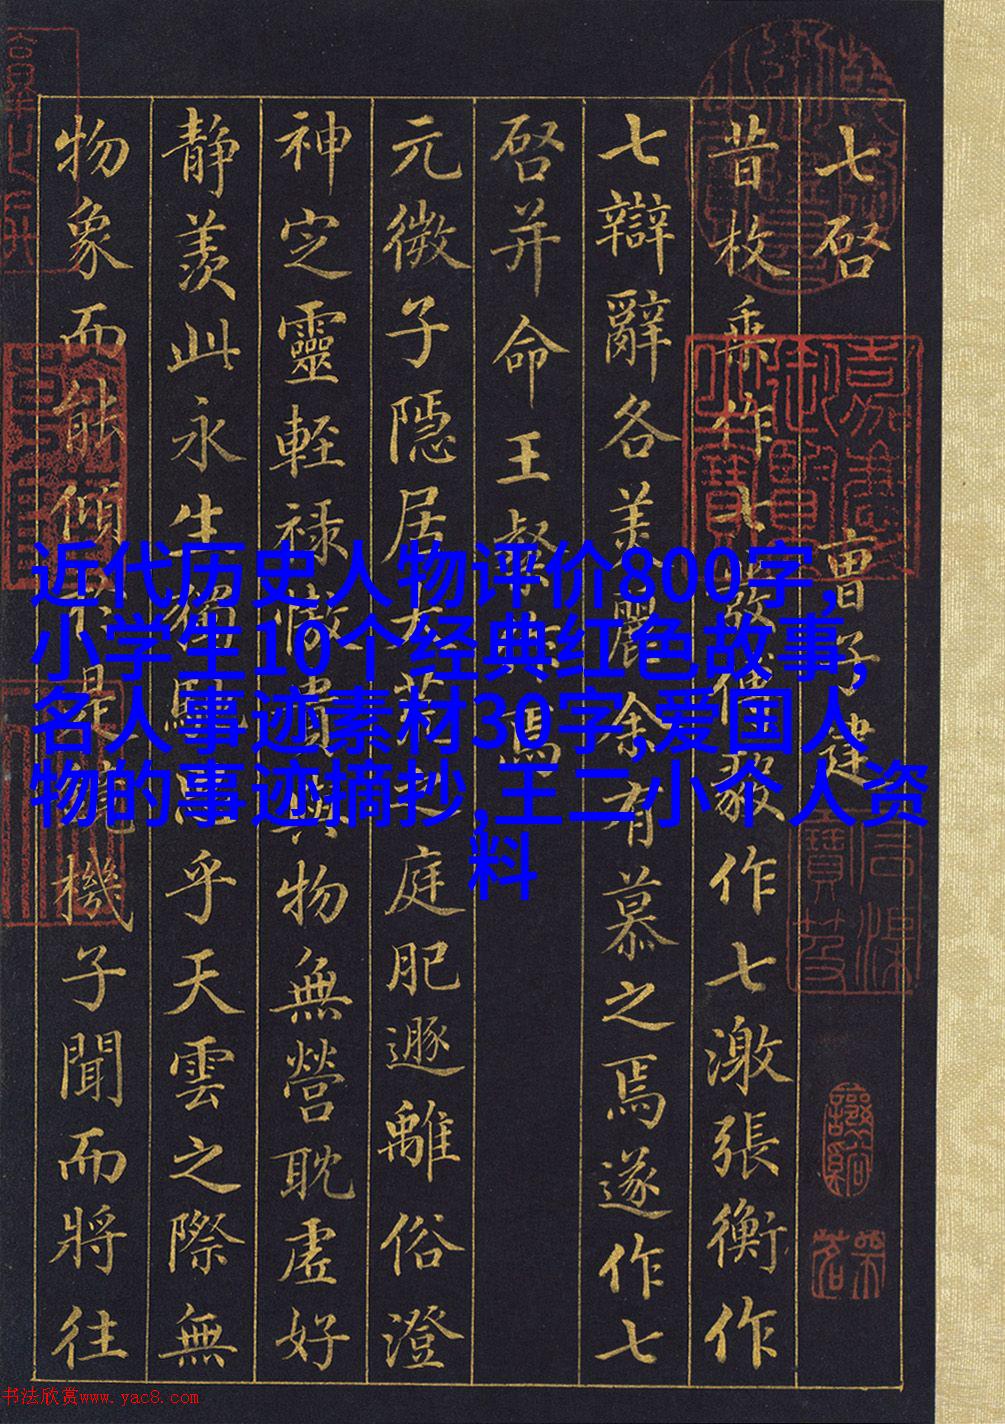 七啓 曹子建
昔枚乘作七發傅毅作七激張衡作
七辯辭各美麗余有慕之焉遂作七
啓并命王粲作焉
元微子隱居大荒之庭肥遯離俗澄
神定靈輕祿傲貴與物無營耽虛好
靜羨此永生獨馳思乎天雲之際無
物象而能傾於是鏡機子聞而將往
近代历史人物评价800字,
小学生10个经典红色故事,
名人事迹素材30字,爱国人
物的事迹摘抄,王二小个人资
料
嘉慶御覽之寶
书法欣赏www.yac8.com